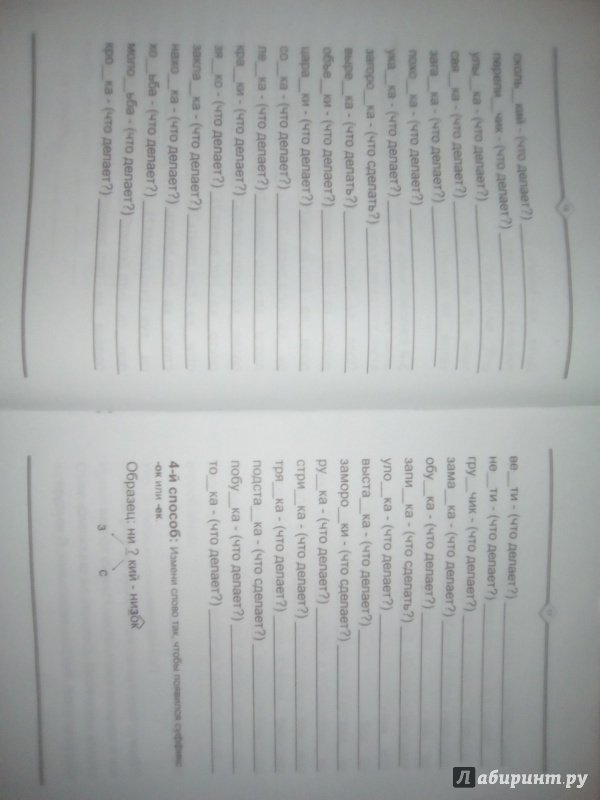 - (что делает?)
перепи__чик - (что делает?)
улы__ка - (что делает?)
свя__ка - (что делает?)
зага__ка - (что делает?)
похо__ка - (что делает?)
ука__ка - (что делает?)
загоро__ка - (что сделать?)
выре__ка - (что делать?)
объе__ки - (что делает?)
цара__ки - (что делает?)
со__ка - (что делает?)
ле__ка - (что делает?)
кра__ки - (что делает?)
зя__ко - (что делает?)
закла__ка - (что делает?)
нахо__ка - (что делает?)
хо__ьба - (что делает?)
моло__ьба - (что делает?)
кро__ка - (что делает?)
ве__ти - (что делает?)
не__ти - (что делает?)
гру__чик - (что делает?)
зама__ка - (что делает?)
обу__ка - (что делает?)
запи__ка - (что сделать?)
упо__ка - (что делает?)
выста__ка - (что делает?)
заморо__ки - (что сделает?)
ру__ка - (что делает?)
стри__ка - (что делает?)
тря__ка - (что делает?)
подста__ка - (что сделает?)
побу__ка - (что делает?)
то__ка - (что делает?)
4-й способ: Измени слово так, чтобы появился суффикс
-ок или -ек.
Образец: ни ? кий - низок
з с
Лабиринт.ру